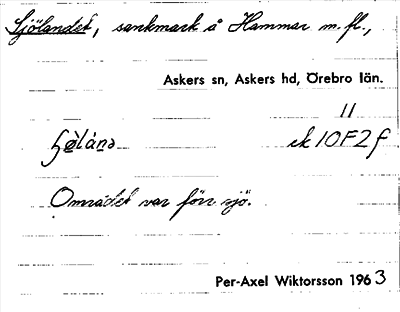 Sjölandet, sankmark å Hammar m. fl.,
Askers sn, Askers hd, Örebro län.
11
ek 10F2f
Området var förr sjö.
Per-Axel Wiktorsson 1963